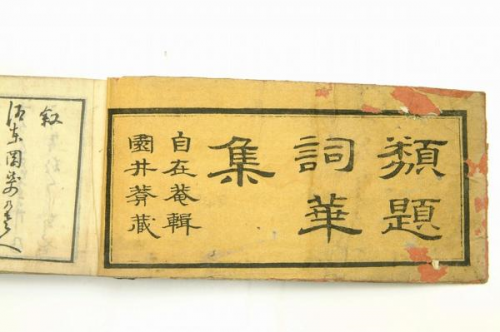 類題
詞華
集
自在菴輯
園井莽蔵
叙